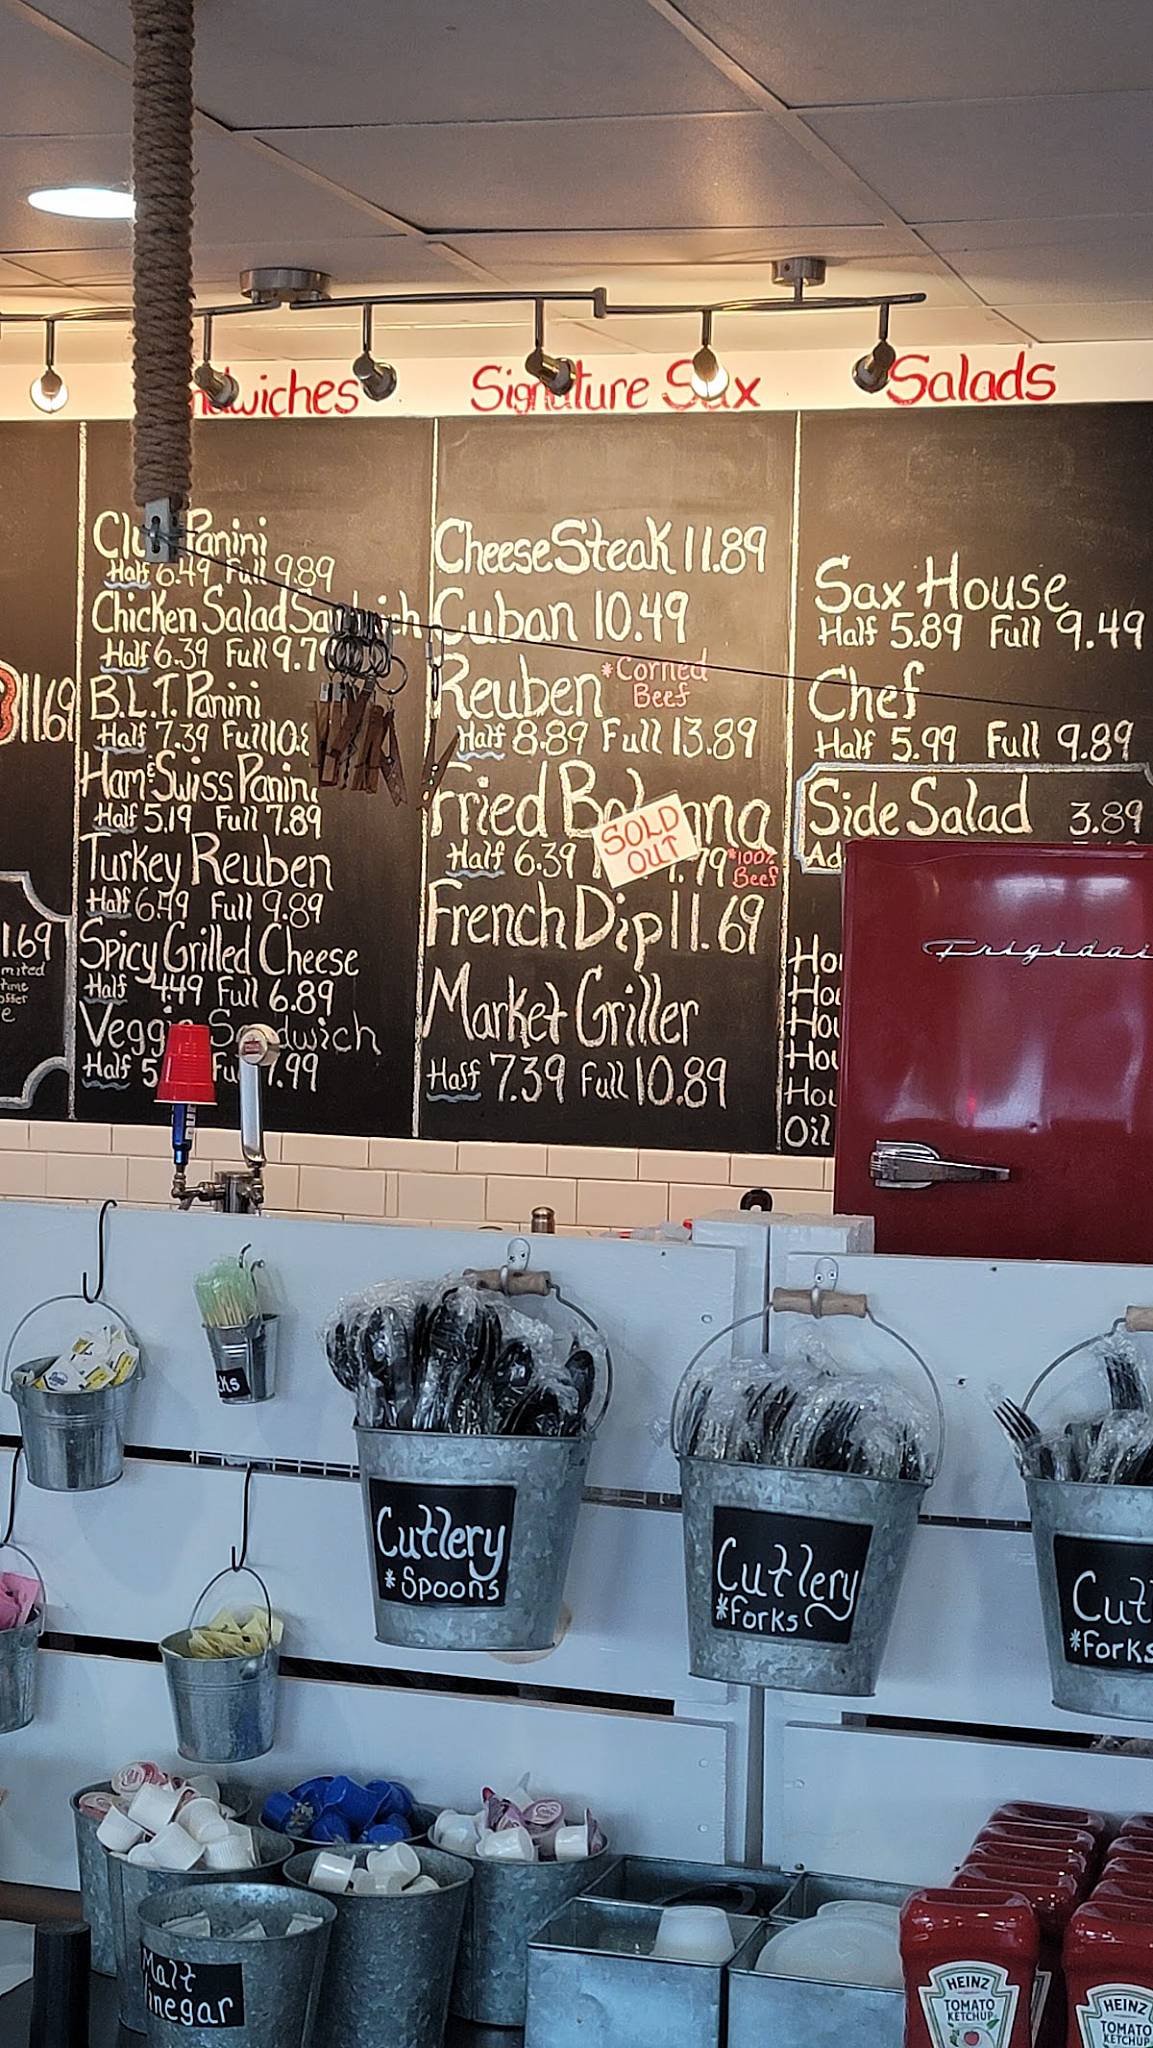 Signature Sax
Salads
Panini
Half 6.49 Full 9.89
Chicken Salad Sandwich
Half 6.39 Full
B.L.T. Panini
Half 7.39 Full
Ham & Swiss Panini
Half 5.19 Full 7.89
Turkey Reuben
Half Full 9.89
Spicy Grilled Cheese
Half 4.49 Full 6.89
Veggie Sandwich
Half
11.69
CheeseSteak 11.89
Cuban 10.49
Reuben *Corned
Beef
Half 8.89 Full 13.89
Fried
SOLD
OUT
Half 6.39
*100%
Beef
French Dip 11.69
Market Griller
Half 7.39 Full 10.89
Sax House
Half 5.89 Full 9.49
Chef
Half 5.99 Full 9.89
Side Salad 3.89
Oil
Cutlery
*Spoons
Cutlery
*Forks
*Forks
Malt
HEINZ
TOMATO
KETCHUP
HEINZ
TOMATO